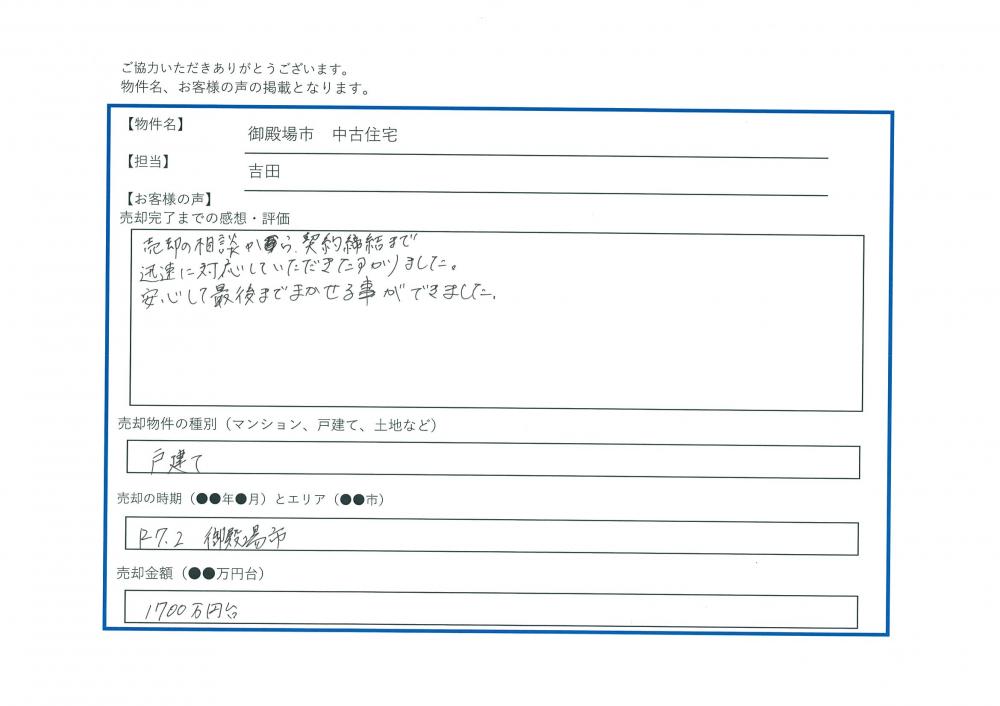 ご協力いただきありがとうございます。
物件名、お客様の声の掲載となります。
【物件名】
御殿場市 中古住宅
【担当】
吉田
【お客様の声】
売却完了までの感想・評価
売却の相談から、契約締結まで
迅速に対応していただきたすかりました。
安心して最後までまかせる事ができました。
売却物件の種別（マンション、戸建て、土地など）
戸建て
売却の時期（●●年●月）とエリア（●●市）
R7.2 御殿場市
売却金額（●●万円台）
1700万円台